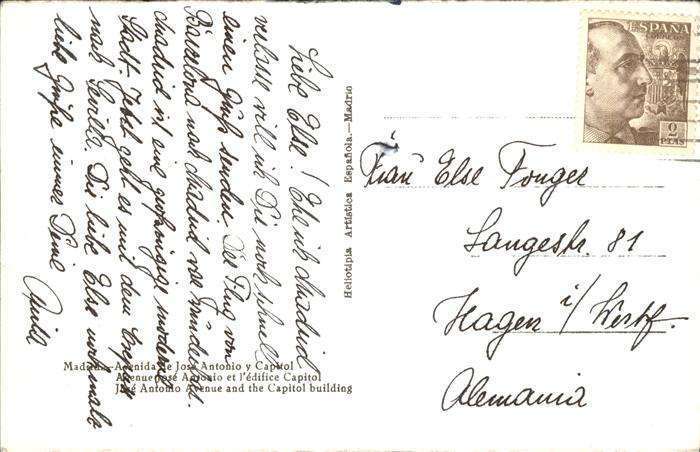 Liebe Else! Ehe ich Madrid
verlasse will ich Dir noch schnell
einen Gruß senden. Der Flug von
Barcelona nach Madrid war
Madrid ist eine großzügige moderne
Stadt. Jetzt geht es mit dem
nach Sevilla. Dir liebe Else nochmals
liebe Grüße immer Deine
Madrid.-Avenida de José Antonio y Capitol
Avenue José Antonio et l'édifice Capitol
José Antonio Avenue and the Capitol building
Heliotipia Artística Española.—Madrid
ESPAÑA
CORREOS
2
PTAS
Frau Else Fonger
Langestr. 81
Hagen i/Westf.
Alemania